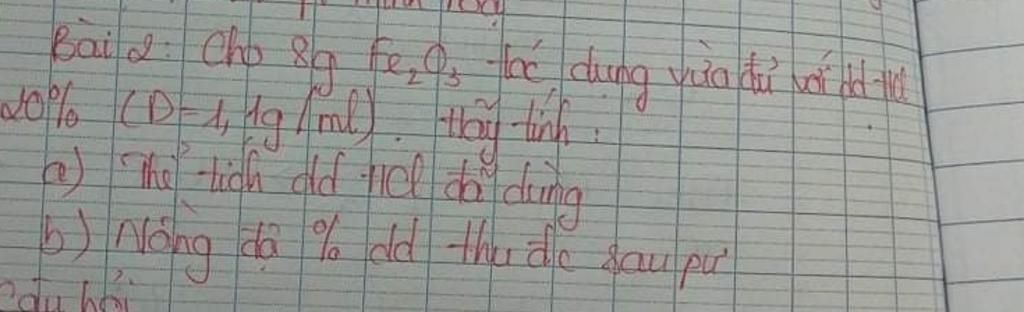 Bài 2: Cho 8g Fe₂O₃ tác dụng vừa đủ với dd HCl
20% (D=1,1g/ml). Hãy tính:
a) Thể tích dd HCl đã dùng
b) Nồng độ % dd thu đc sau pư